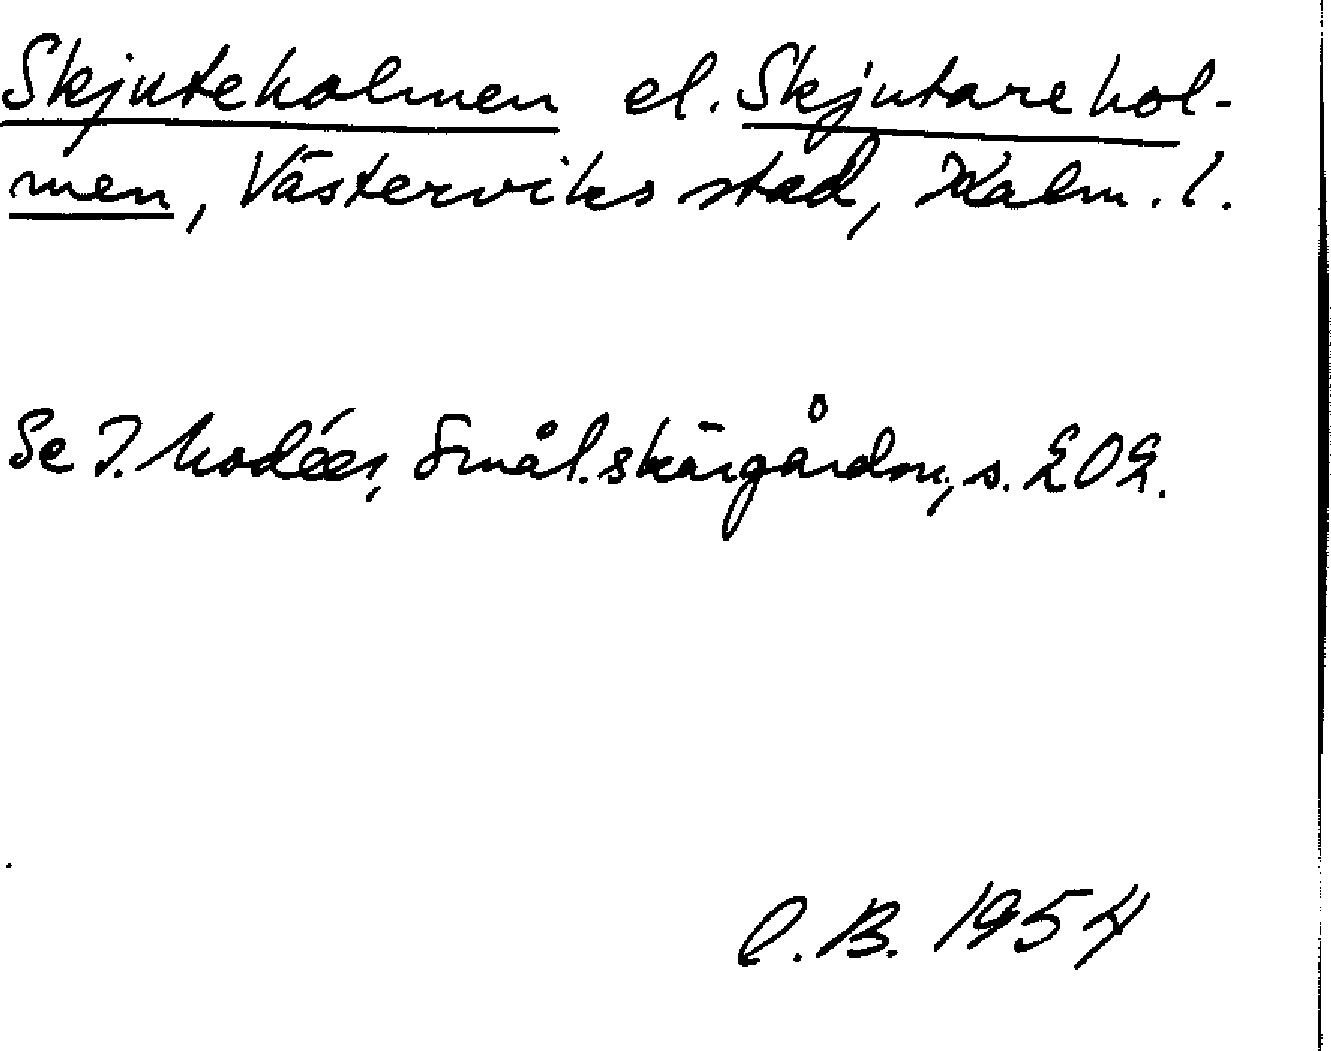 Skjuteholmen el. Skjutarehol-
men, Västerviks stad, Kalm. l.
Se I. Modéer, Smål. skärgårdsn., s. 202.
C. B. 1954